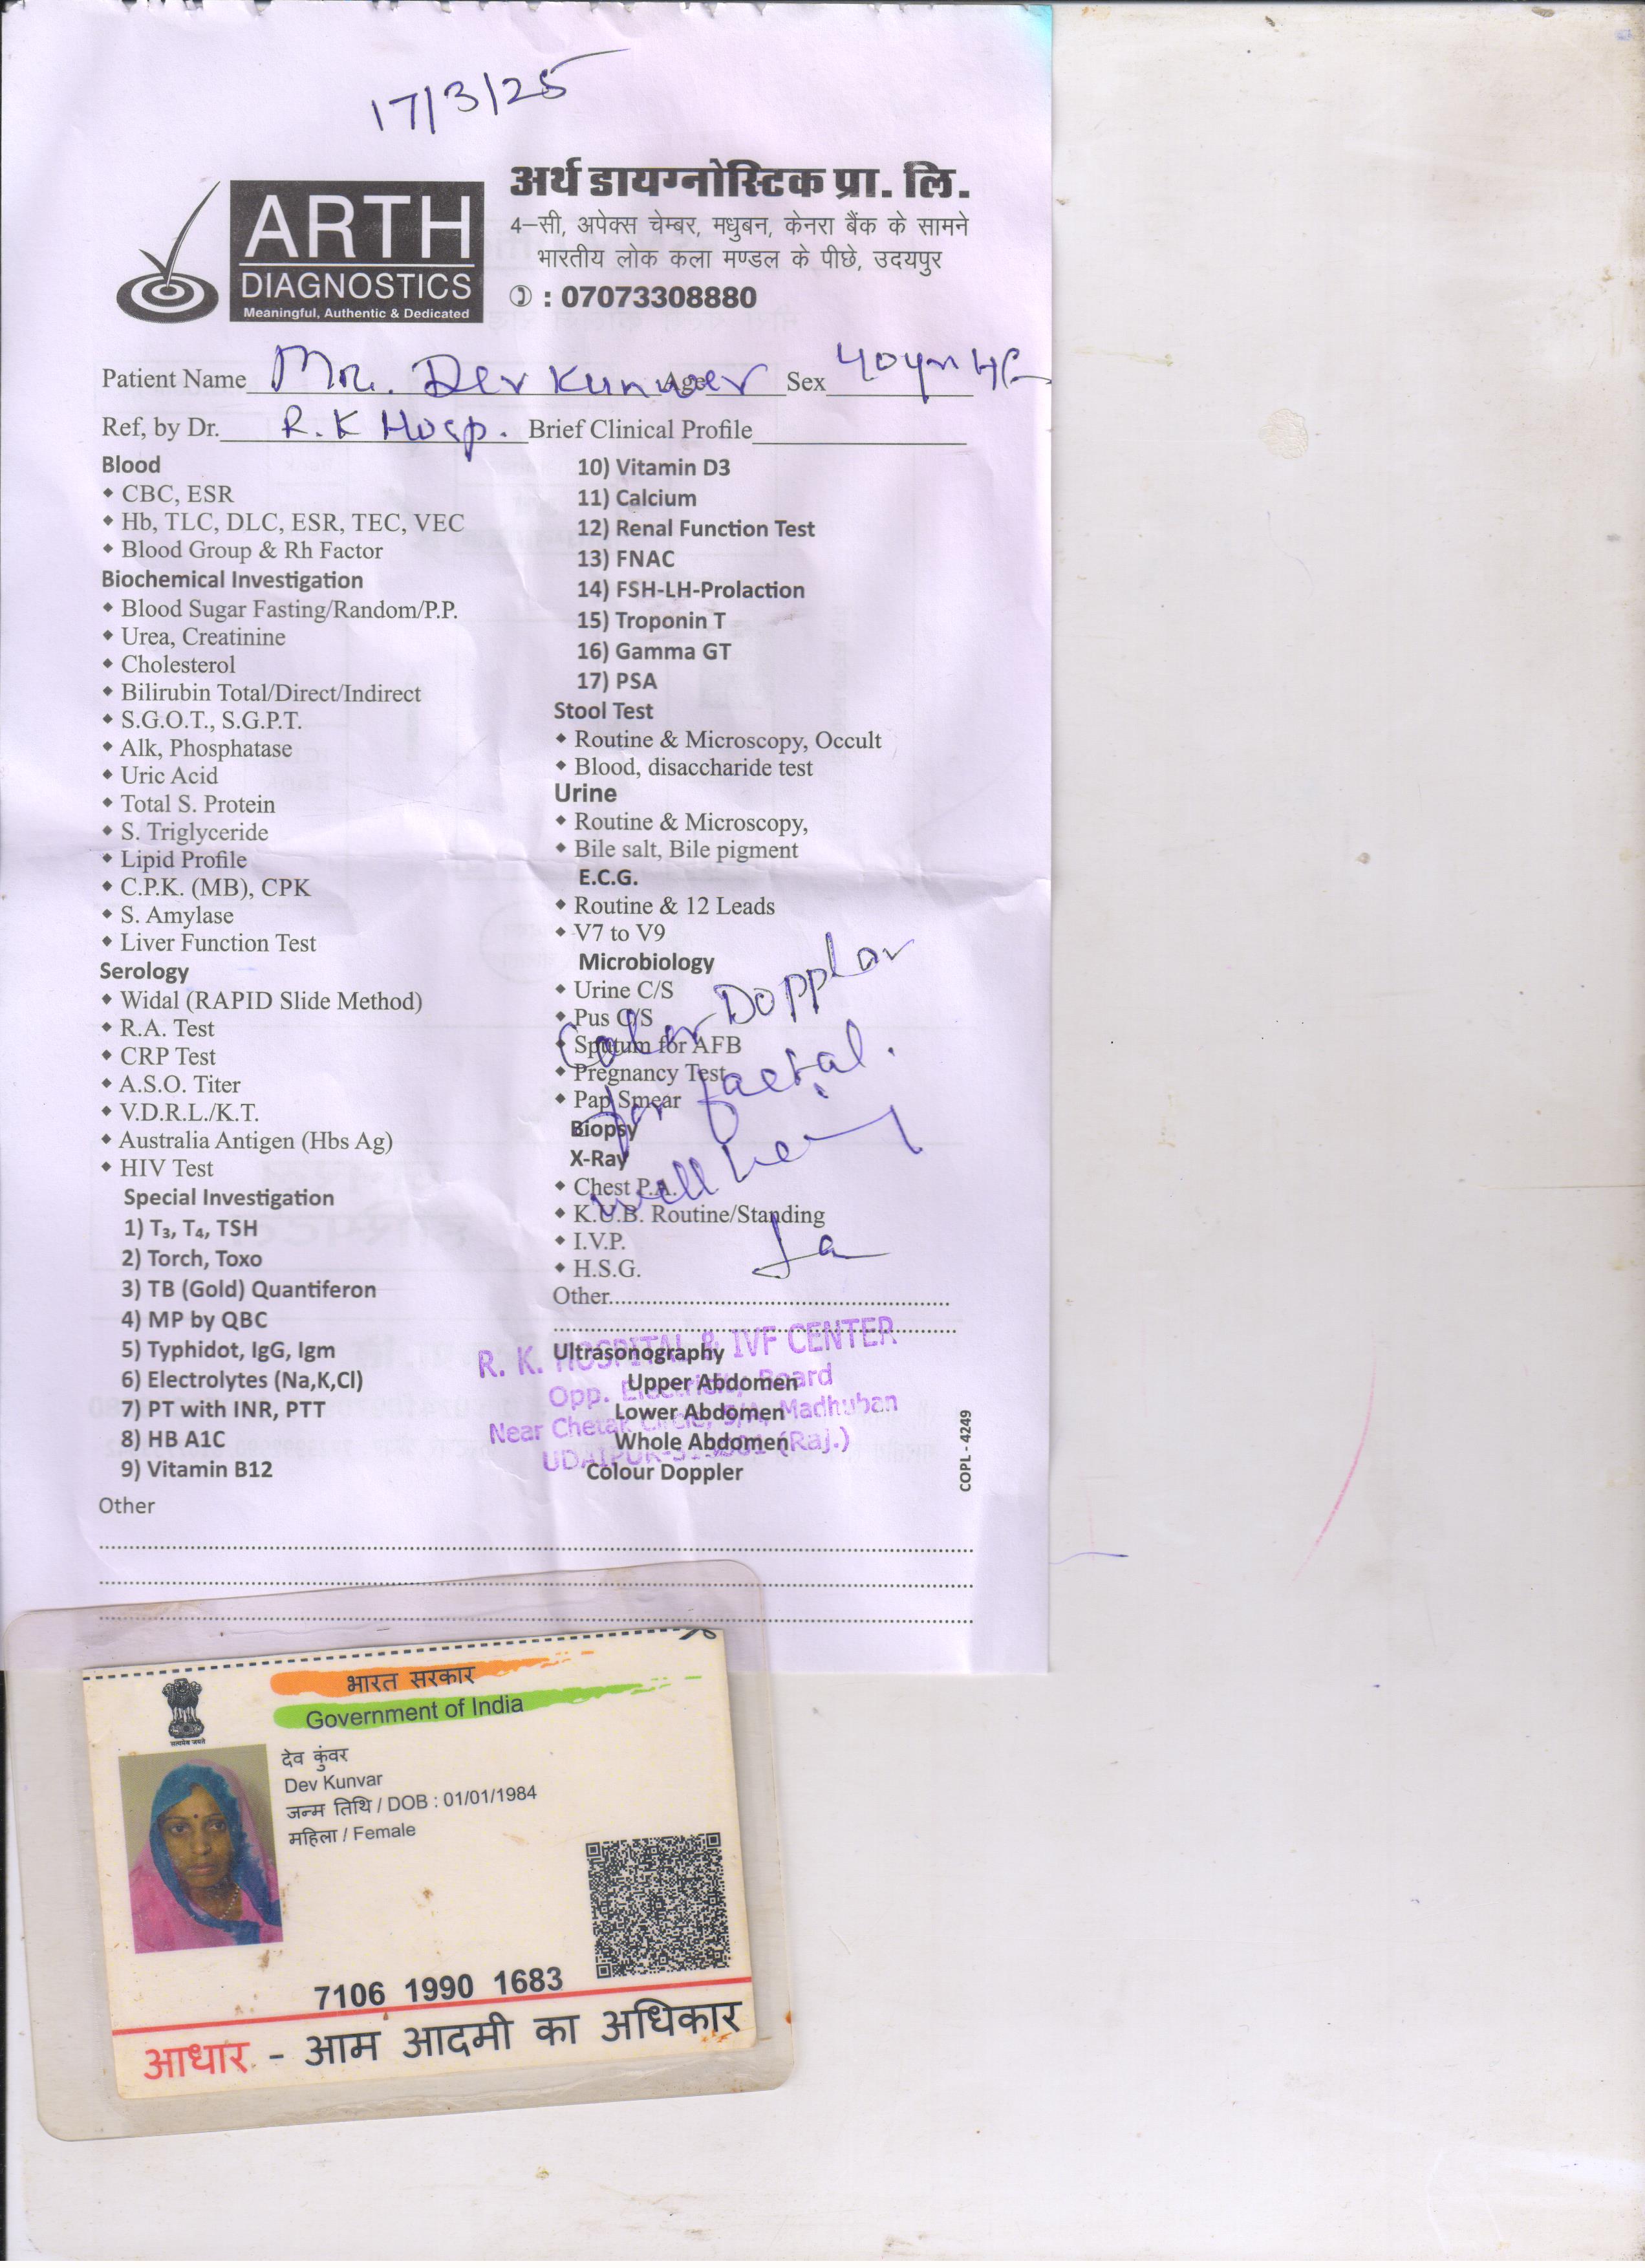 17/3/25
ARTH
DIAGNOSTICS
Meaningful, Authentic & Dedicated
अर्थ डायग्नोस्टिक प्रा. लि.
4–सी, अपेक्स चेम्बर, मधुबन, केनरा बैंक के सामने
भारतीय लोक कला मण्डल के पीछे, उदयपुर
: 07073308880
Patient Name Dev Kunwer Age Sex 40
Ref, by Dr. R.K Hosp. Brief Clinical Profile
Blood
• CBC, ESR
• Hb, TLC, DLC, ESR, TEC, VEC
• Blood Group & Rh Factor
Biochemical Investigation
• Blood Sugar Fasting/Random/P.P.
• Urea, Creatinine
• Cholesterol
• Bilirubin Total/Direct/Indirect
• S.G.O.T., S.G.P.T.
• Alk, Phosphatase
• Uric Acid
• Total S. Protein
• S. Triglyceride
• Lipid Profile
• C.P.K. (MB), CPK
• S. Amylase
• Liver Function Test
Serology
• Widal (RAPID Slide Method)
• R.A. Test
• CRP Test
• A.S.O. Titer
• V.D.R.L./K.T.
• Australia Antigen (Hbs Ag)
• HIV Test
Special Investigation
1) T₃, T₄, TSH
2) Torch, Toxo
3) TB (Gold) Quantiferon
4) MP by QBC
5) Typhidot, IgG, Igm
6) Electrolytes (Na,K,Cl)
7) PT with INR, PTT
8) HB A1C
9) Vitamin B12
Other
10) Vitamin D3
11) Calcium
12) Renal Function Test
13) FNAC
14) FSH-LH-Prolaction
15) Troponin T
16) Gamma GT
17) PSA
Stool Test
• Routine & Microscopy, Occult
• Blood, disaccharide test
Urine
• Routine & Microscopy,
• Bile salt, Bile pigment
E.C.G.
• Routine & 12 Leads
• V7 to V9
Microbiology
• Urine C/S
• Pus C/S
• Sputum for AFB
• Pregnancy Test
• Pap Smear
Biopsy
X-Ray
• Chest P.A.
• K.U.B. Routine/Standing
• I.V.P.
• H.S.G.
Other
Color Dopplar
for faetal.
well being
Ultrasonography
Upper Abdomen
Lower Abdomen
Whole Abdomen
Colour Doppler
R. K. HOSPITAL & IVF CENTER
Opp. Electricity Board
Near Chetak Circle, 5/A, Madhuban
UDAIPUR-313001 (Raj.)
COPL - 4249
भारत सरकार
Government of India
सत्यमेव जयते
देव कुंवर
Dev Kunvar
जन्म तिथि / DOB : 01/01/1984
महिला / Female
7106 1990 1683
आधार - आम आदमी का अधिकार